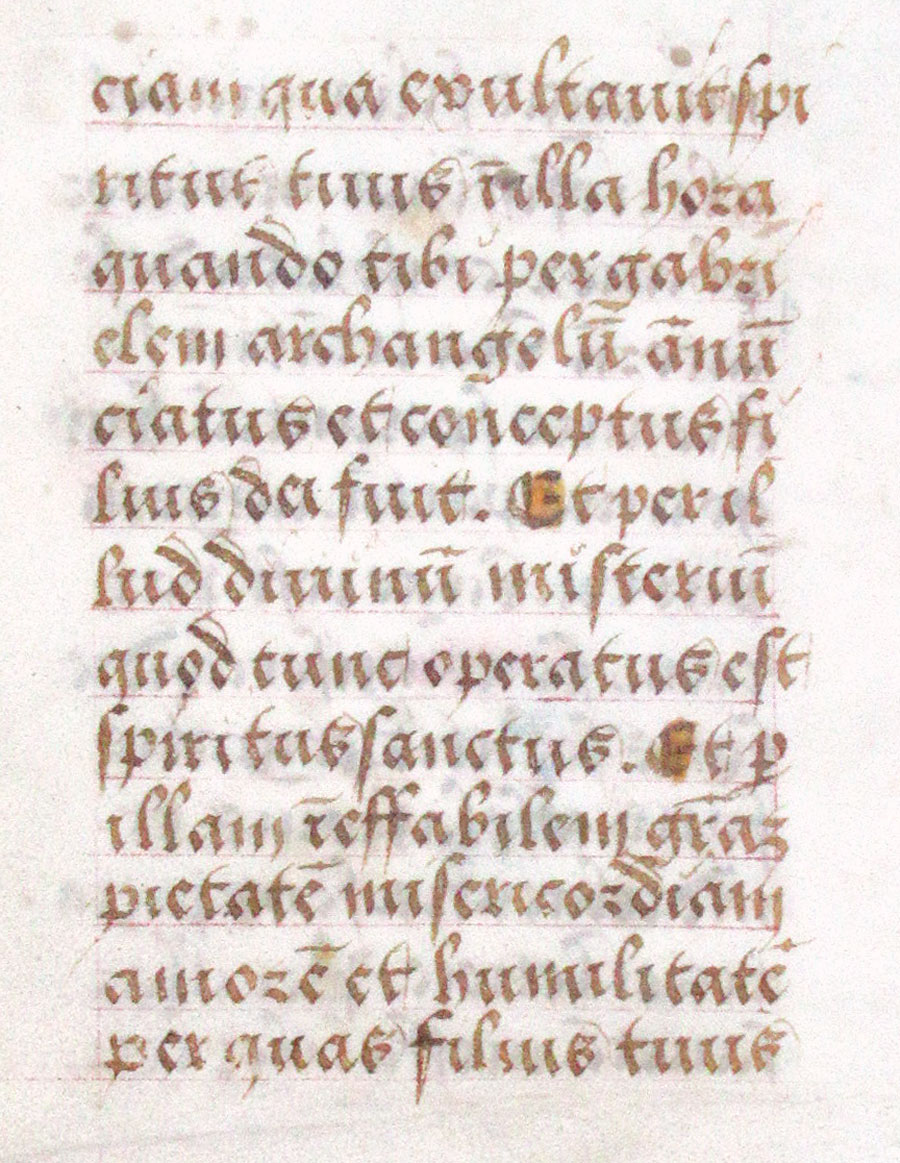 ciam qua exultauit spi
ritus tuus ī illa hora
quando tibi per gabri
elem archangelū ānū
ciatus et conceptus fi
lius dei fuit. Et per il
lud diuinū misteriū
quod tunc operatus est
spiritus sanctus. Et ꝑ
illam īeffabilem gr̄aꝫ
pietatē misericordiam
amorē et humilitatē
per quas filius tuus